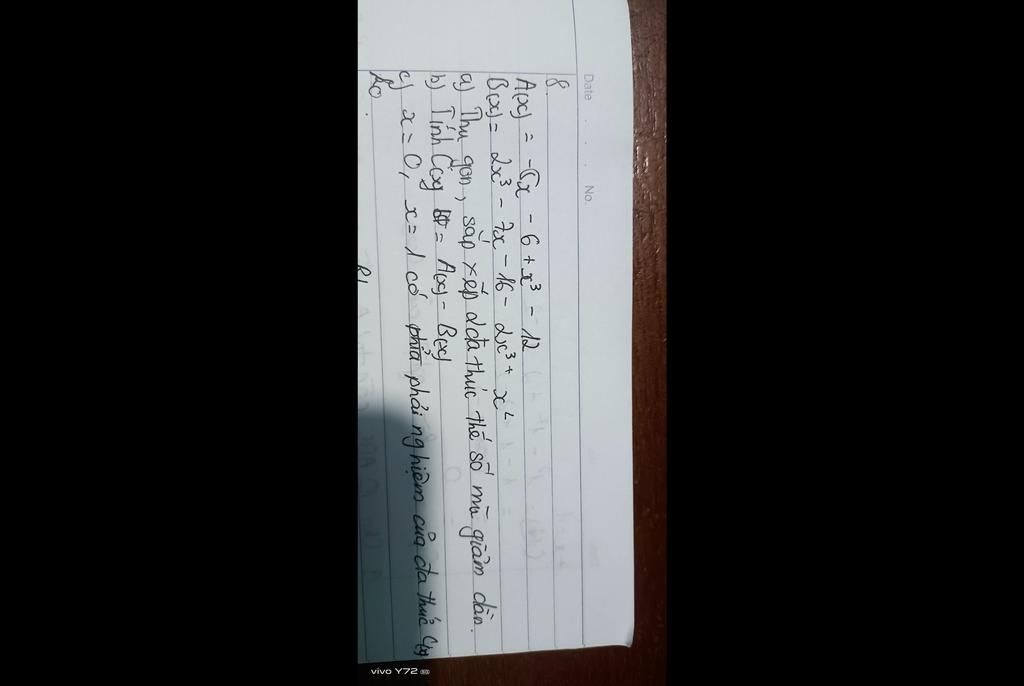 Date . . . No.
8.
A(x) = -5x - 6 + x³ - 12
B(x) = 2x³ - 7x - 16 - 2x³ + x²
a) Thu gọn, sắp xếp 2 đa thức thế số mũ giảm dần.
b) Tính C(x) = A(x) - B(x)
c) x = 0, x = 1 có phải nghiệm của đa thức C(x)
vivo Y72 5G